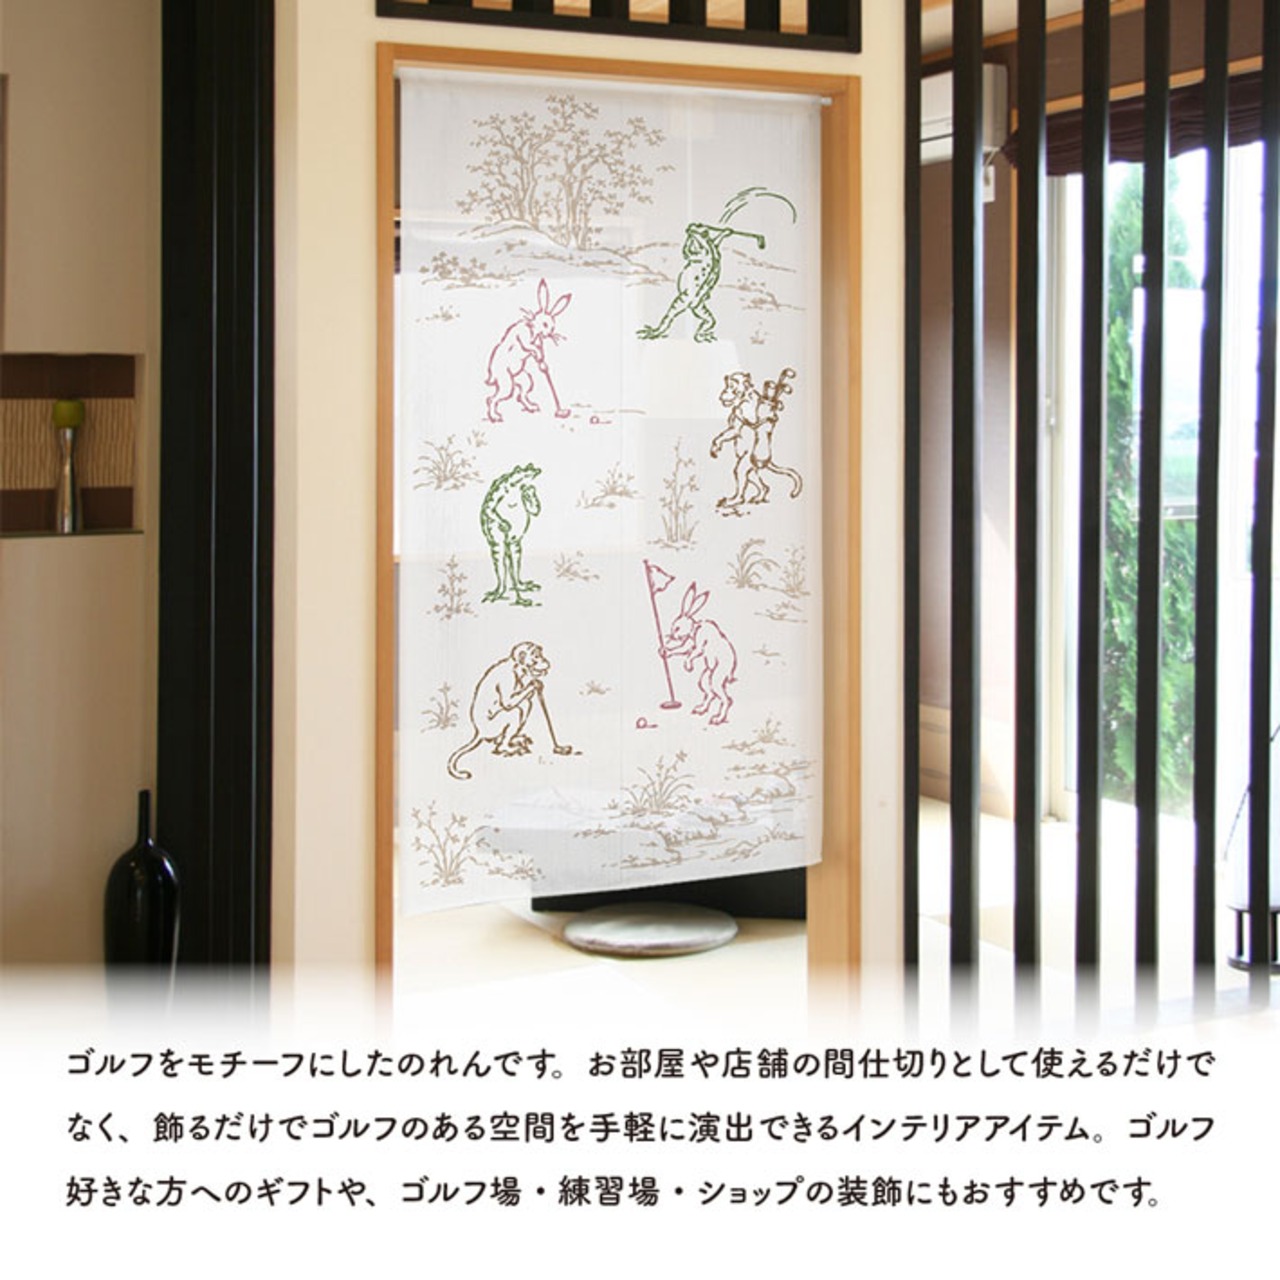 ゴルフをモチーフにしたのれんです。お部屋や店舗の間仕切りとして使えるだけで
なく、飾るだけでゴルフのある空間を手軽に演出できるインテリアアイテム。ゴルフ
好きな方へのギフトや、ゴルフ場・練習場・ショップの装飾にもおすすめです。